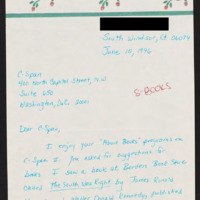 South Windsor, Ct. 06074
June 10, 1996
C-Span
400 North Capitol Street, N.W.
Suite 650
Washington, D.C. 20001
S-BOOKS
Dear C-Span,
I enjoy your "Book Notes" programs on
C-Span I. You asked for suggestions for
books. I saw a book at Borders Book Store
called The South Was Right by James Ronald
Kennedy, published